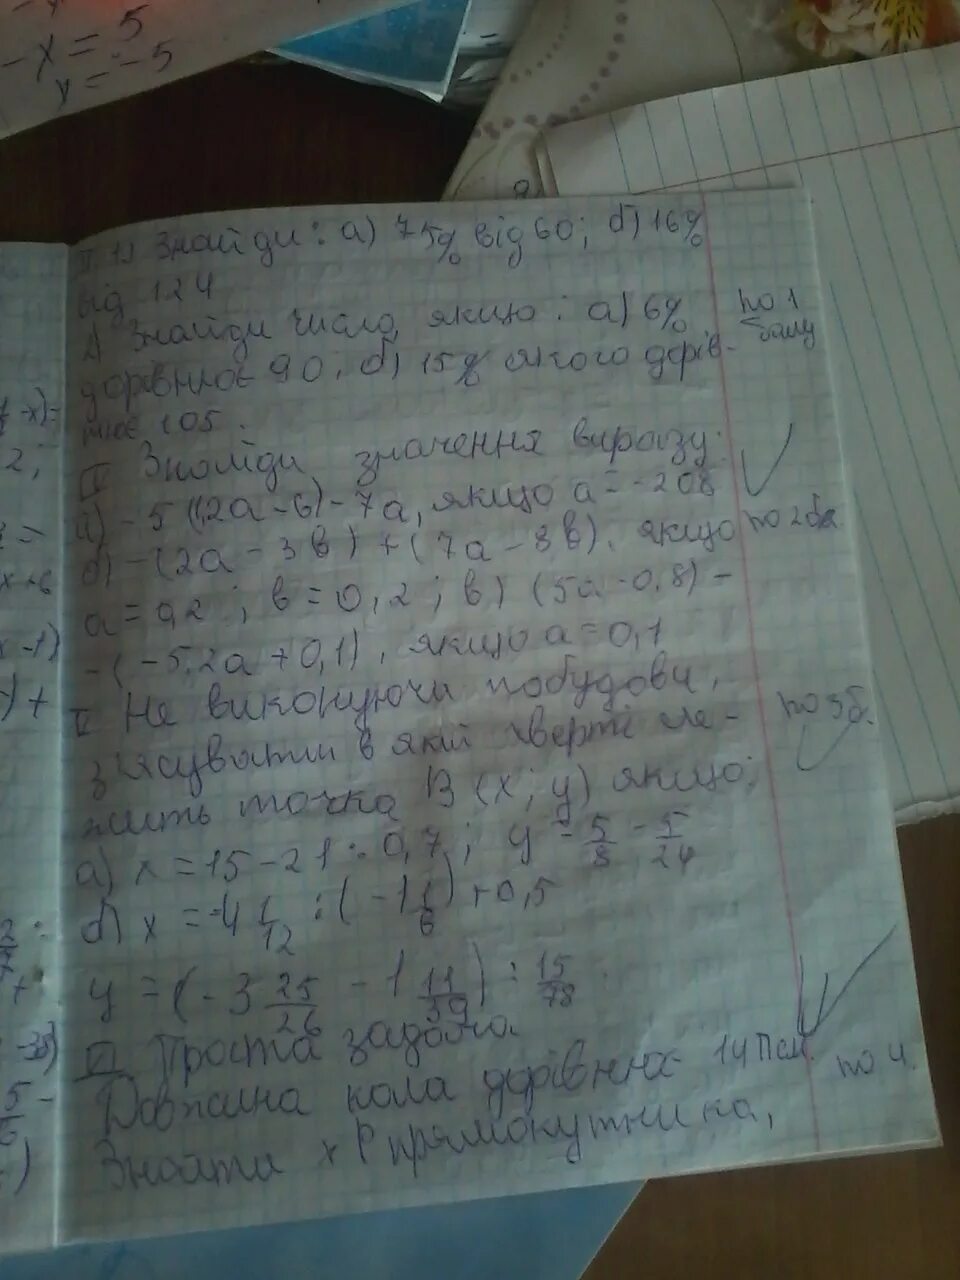 -x = 5
y = -5
1) Знайди: а) 75% від 60; б) 16%
від 124
Знайди число, якщо: а) 6% по 1
дорівнює 90; б) 15% якого дорів- балу
нює 105.
IV Знайди значення виразу:
а) -5(1,2a-6)-7a, якщо a = -208
б) -(2a - 3b) + (7a - 3b), якщо по 2 б
a = 0,2; b = 0,2; в) (5a - 0,8) -
-(-5,2a + 0,1), якщо a = 0,1
V Не виконуючи побудови,
з'ясувати в якій чверті ле- по 3 б.
жить точка B (x; y) якщо;
а) x = 15 - 21 : 0,7; y = 5/8 - 5/24
б) x = -4 1/12 : (-1 1/6) + 0,5
y = (-3 25/26 - 1 11/39) : 15/78
VI Проста задача
Довжина кола дорівнює 14П см. по 4.
Знайти P прямокутника,